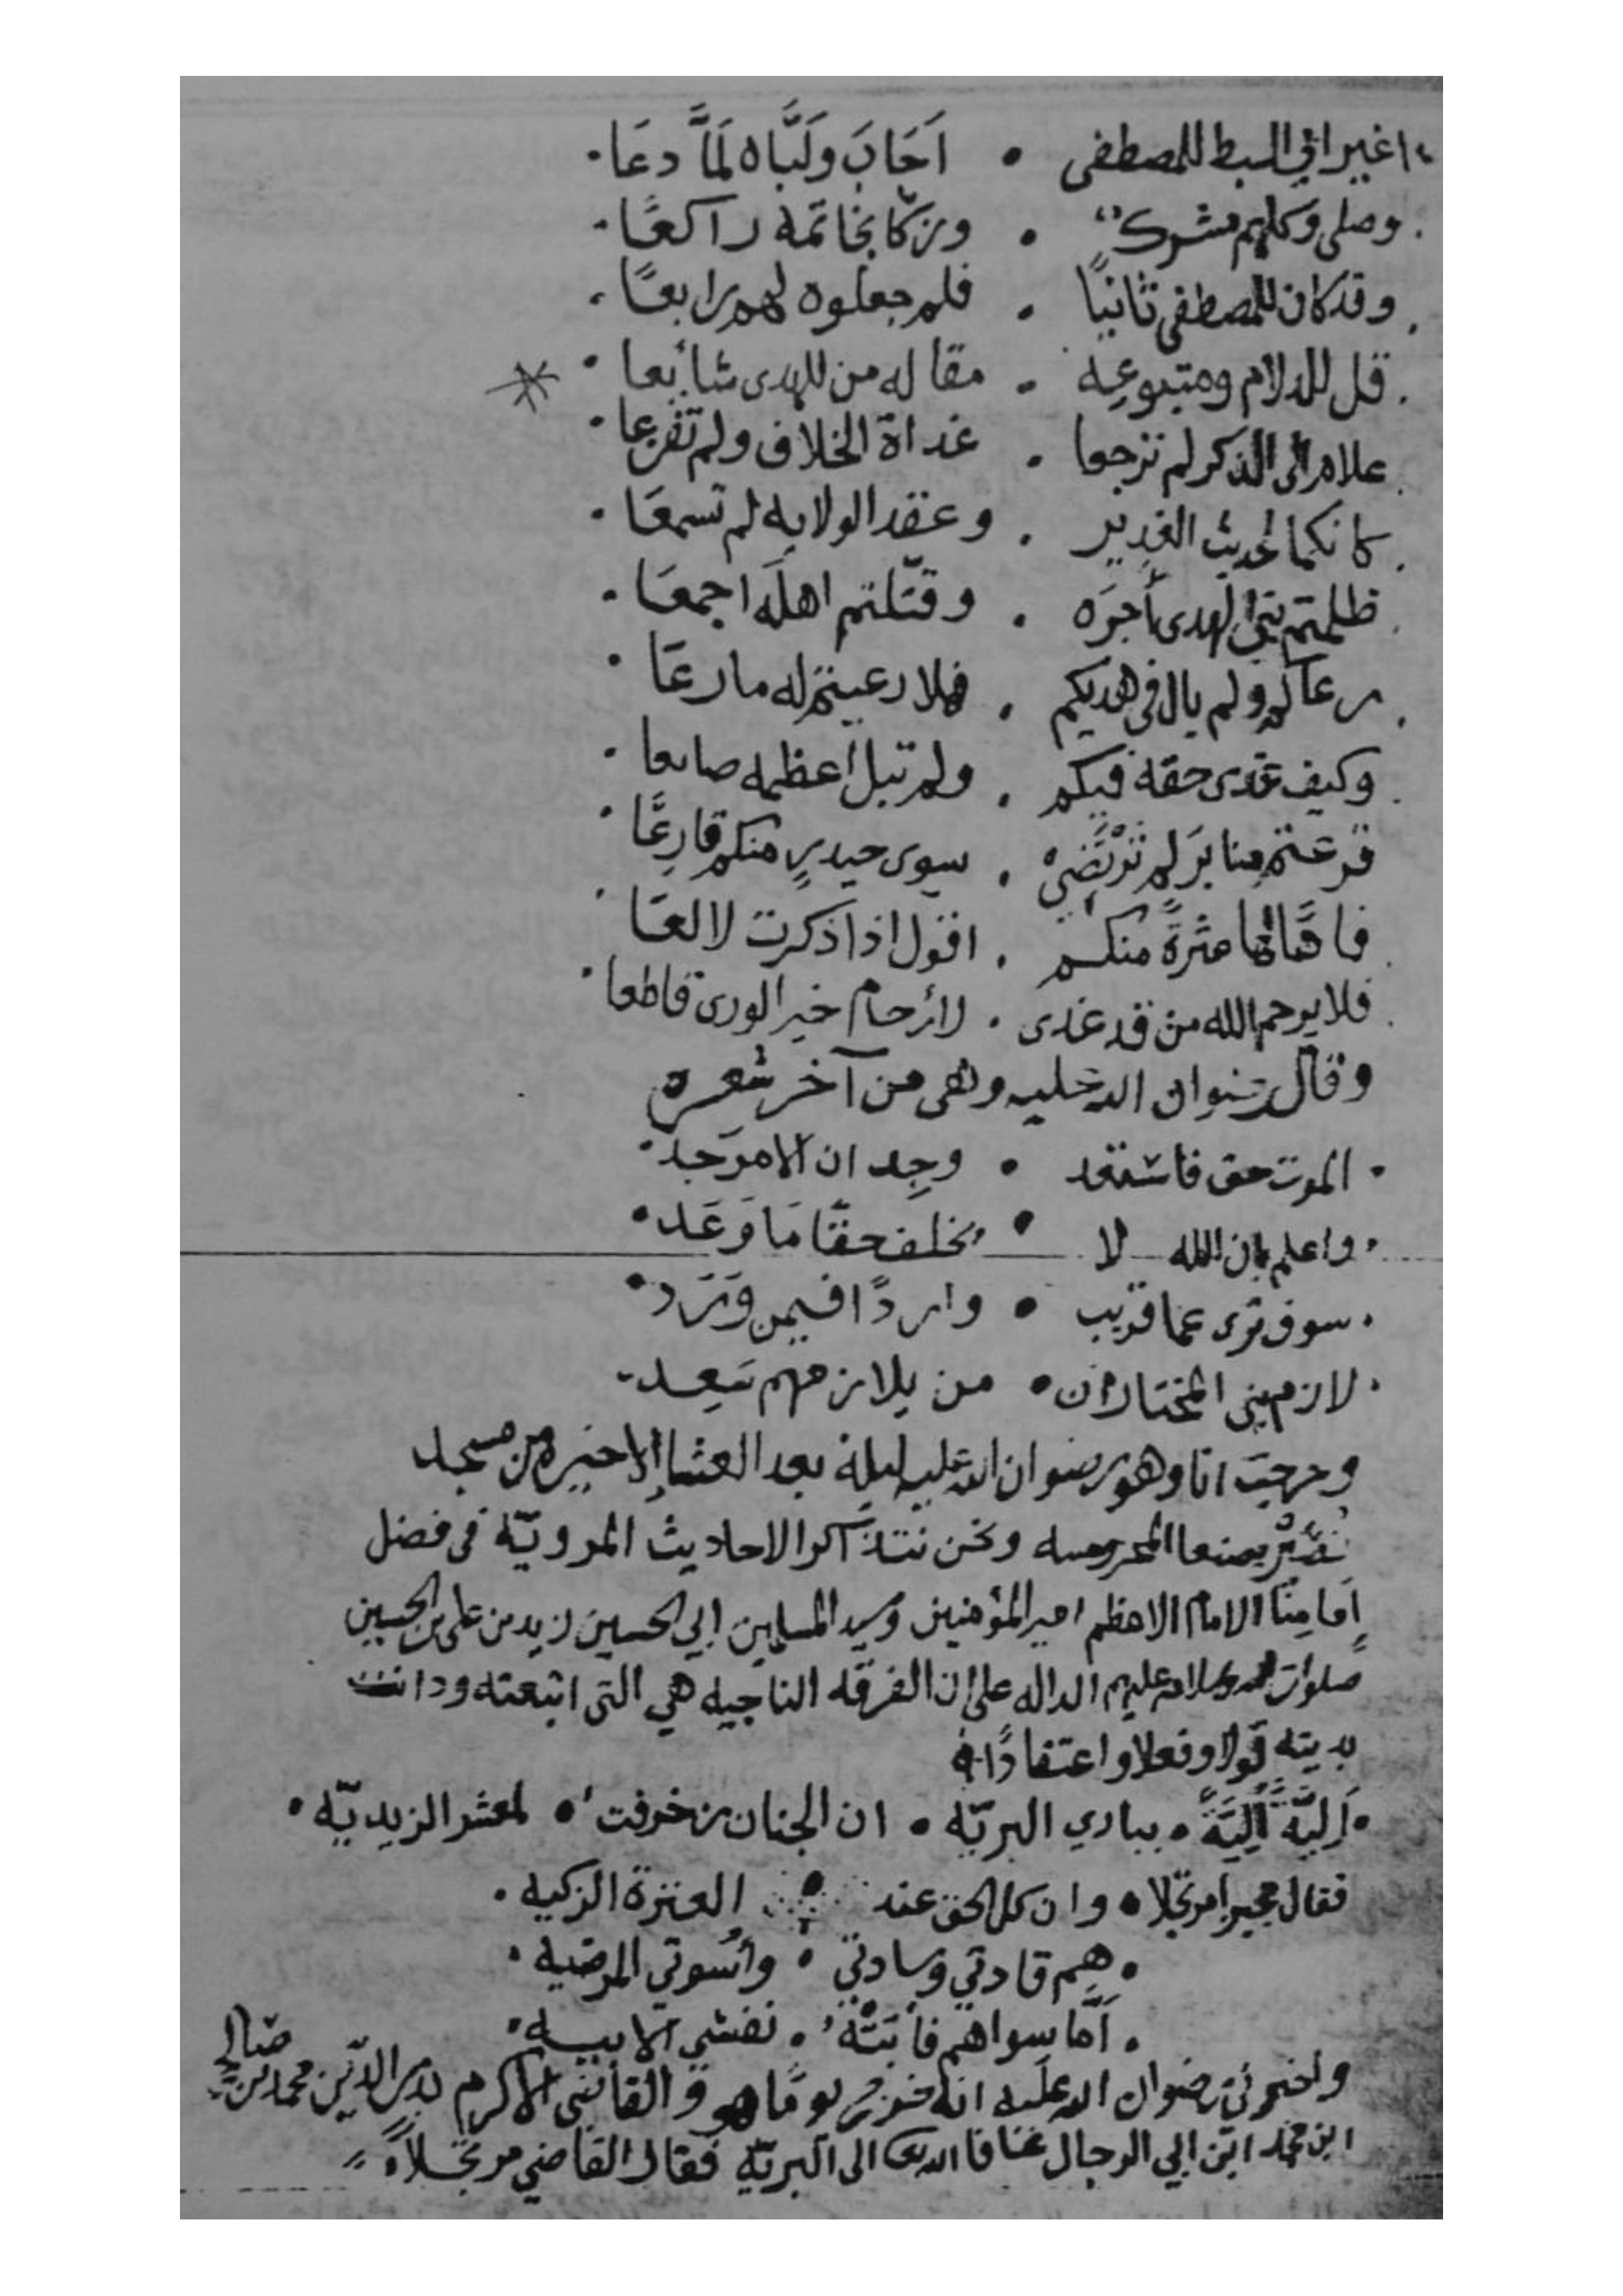 اغير ابي السبط للمصطفى • اَجَابَ ولَبَّاه لَمَّا دعَا
وصلى وكلهم مشرك • وزكا بخاتمه راكعًا
وقد كان للمصطفى ثانيًا • فلم جعلوه لهم رابعًا
قل للدلام ومتبوعه • مقاله من للهدى شايعا
علام الى الذكر لم ترجعا • غداة الخلاف ولم تفزعا
كانكما لحديث الغدير • وعقد الولايه لم تسمعَا
ظلمتم نبي الهدى أجرَه • وقتّلتم اهلَه اجمعَا
رعاكم ولم يال في هديكم • فهلا رعيتم له ما رعَا
وكيف غدى حقه فيكم • ولم تبل اعظمه ضايعا
قرعتم منابرَ لم تَرْتَضِيْ • سوى حيدرٍ منكم قارِعًا
فاقًّا لها عثرةً منكم • اقول اذا ذكرت لا لعَا
فلا يرحم الله من قد غدى • لأرحام خير الورى قاطعا
وقال رضوان الله عليه وهي من آخر شعره
الموت حق فاستعد • وجِد ان الامر جد
واعلم بان الله لا • يخلف حقًّا مَا وَعَد
سوف ترى عما قريب • واردًا فيمن وَرَد
لازم بني المختار ان • من يلازمهم سَعِد
وخرجت انا وهو رضوان الله عليه ليلة بعد العشا الاخيره من مسجد
نُصَيْر بصنعا المحروسه ونحن نتذاكرا الاحاديث المرويّه في فضل
اِمامِنَا الامام الاعظم امير المؤمنين وسيد المسلمين ابي الحسين زيد بن علي بن الحسين
صلوات الله وسلامه عليهم الداله على ان الفرقه الناجيه هي التي اتبعته ودانت
بدينه قولا وفعلا واعتقادًا
اَلِيَّة اَلِيَّةً • ببادي البريّه • ان الجنان زخرفت • لمعشر الزيديّه
فقال مجيبا مرتجلا • وان كل الحق عند • العترة الزكيه
هم قادتي وسادتي • وأسوتي المرضيه
اَمَّا سواهم فأبَتْهُ • نفسي الابيه
واخبرني رضوان الله عليه انه خرج يومًا هو والقاضي الاكرم بدر الدين محمد بن صالح
ابن محمد ابن ابي الرجال الى البريّه فقال القاضي مرتجلاً